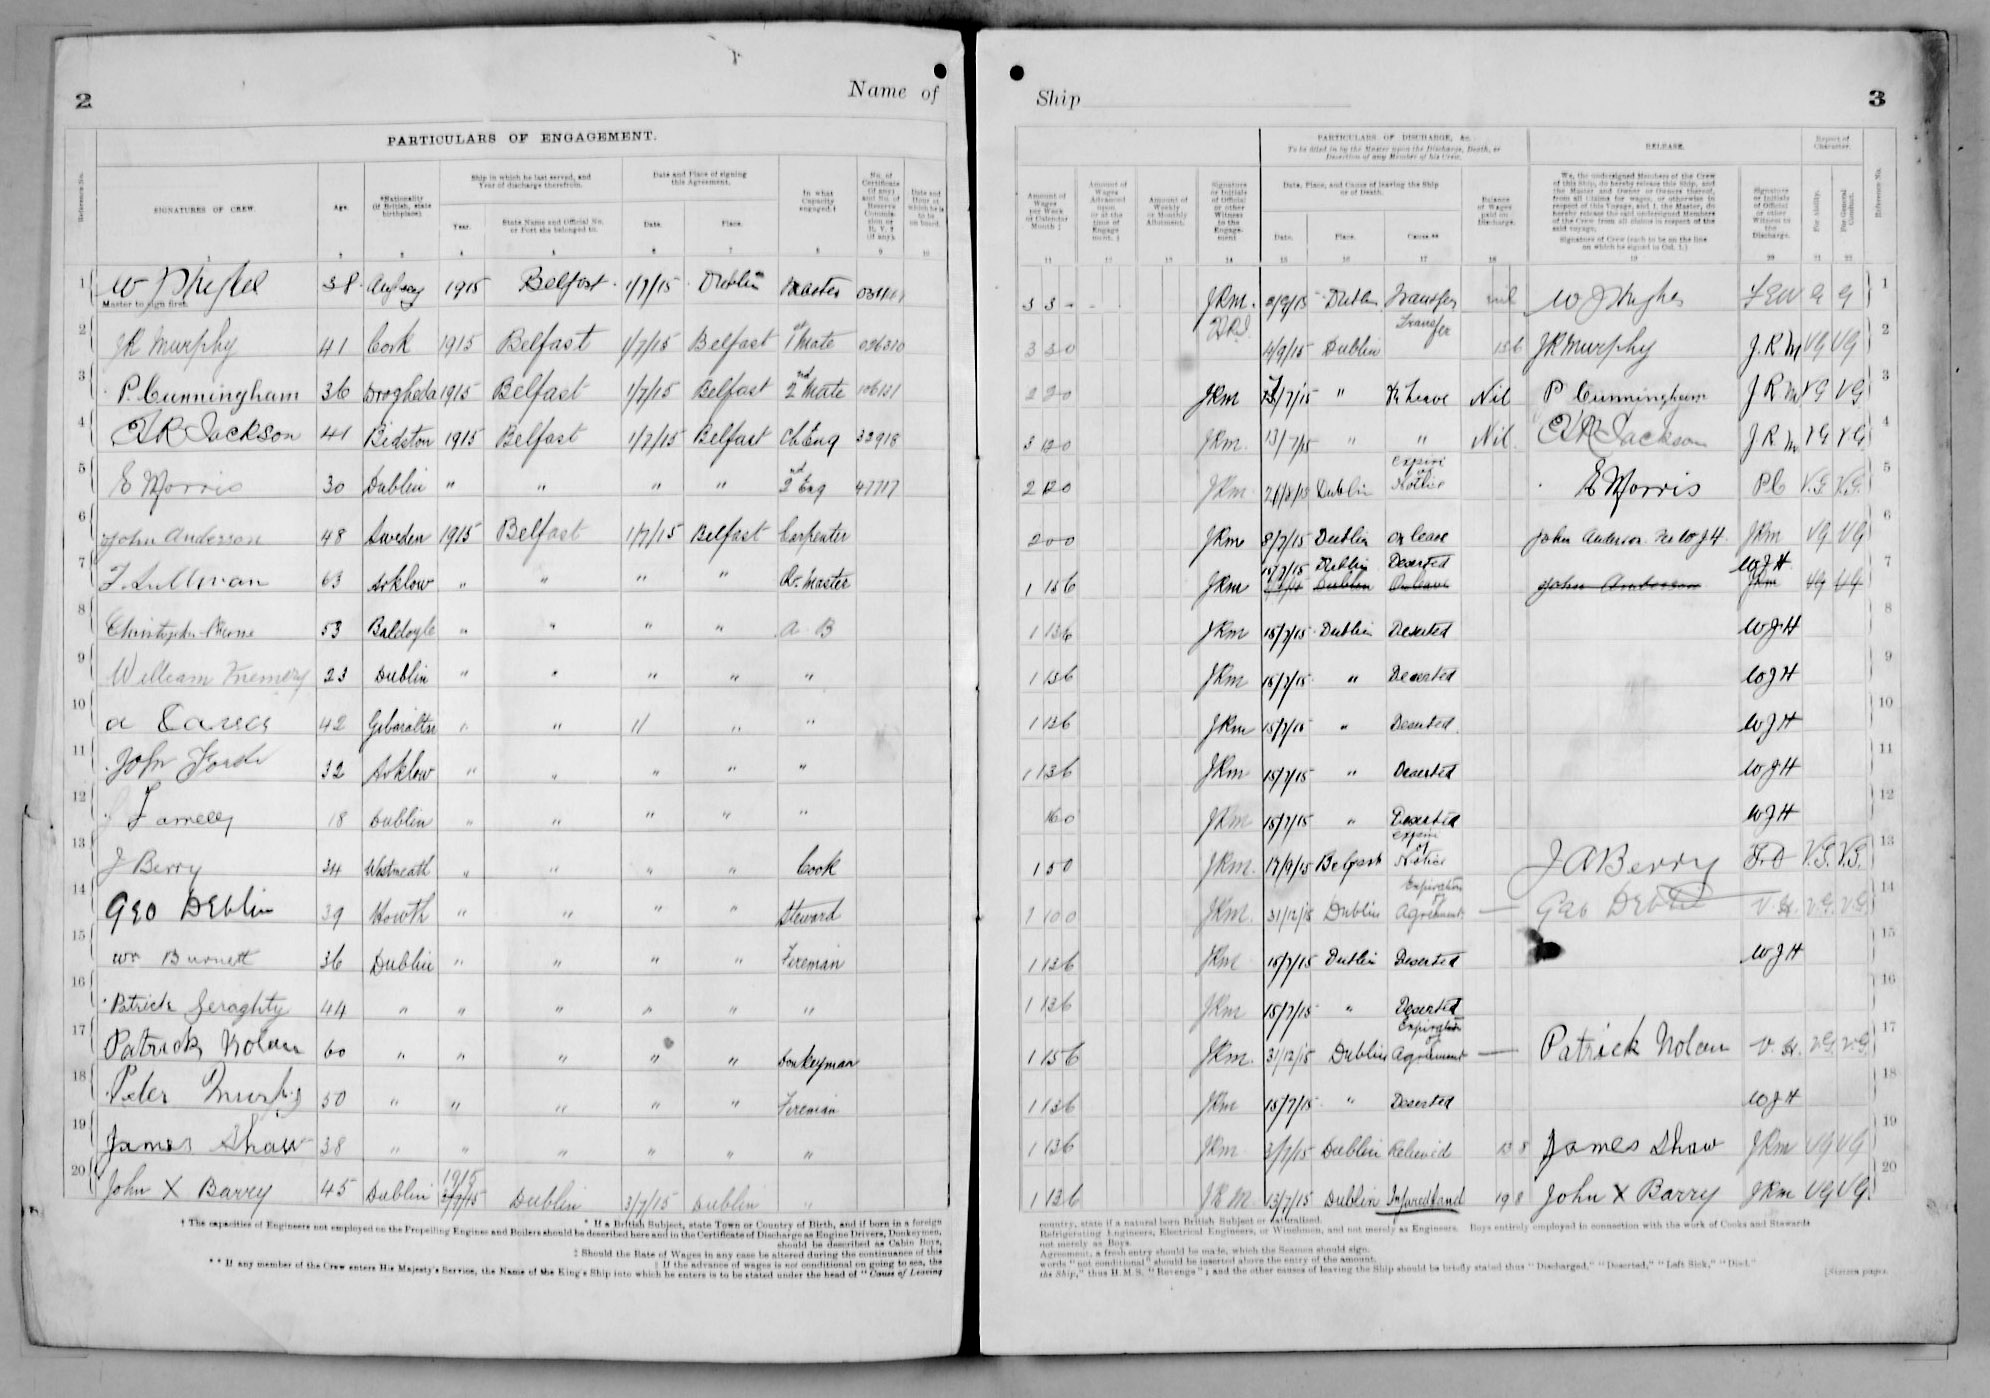 2
Name of
PARTICULARS OF ENGAGEMENT.
Reference No.
SIGNATURES OF CREW.
Age.
*Nationality (if British, state birthplace)
Ship in which he last served, and Year of discharge therefrom.
Year.
State Name and Official No. or Port she belonged to.
Date and Place of signing this Agreement.
Date.
Place.
In what Capacity engaged.†
No. of Certificate (if any) and No. of Reserve Commission or R. V. 2 (if any).
Date and Hour at which he is to be on board.
1 2 3 4 5 6 7 8 9 10
1 38 1915 Belfast 1/7/15 Dublin Master
Master to sign first.
2 JR Murphy 41 Cork 1915 Belfast 1/7/15 Belfast 1st Mate 036310
3 P. Cunningham 36 Drogheda 1915 Belfast 1/7/15 Belfast 2nd Mate 106131
4 Jackson 41 Bidston 1915 Belfast 1/7/15 Belfast Ch Eng 32918
5 E Morris 30 Dublin " " " " 2nd Eng 47717
6 John Anderson 48 Sweden 1915 Belfast 1/7/15 Belfast Carpenter
7 63 Arklow " " " " Qr. Master
8 Christopher 53 Baldoyle " " " " A B
9 William 23 Dublin " " " " "
10 a 42 Gibraltar " " " " "
11 John Forde 32 Arklow " " " " "
12 18 Dublin " " " " "
13 J Berry 34 Westmeath " " " " Cook
14 Geo Deblin 39 Howth " " " " Steward
15 Wm Burnett 36 Dublin " " " " Fireman
16 Patrick Geraghty 44 " " " " " "
17 Patrick Nolan 60 " " " " " Donkeyman
18 Peter Murphy 50 " " " " " Fireman
19 James Shaw 38 " " " " " "
20 John X Barry 45 Dublin 1915 Dublin 3/7/15 Dublin "
* If a British Subject, state Town or Country of Birth, and if born in a foreign
† The capacities of Engineers not employed on the Propelling Engines and Boilers should be described here and in the Certificate of Discharge as Engine Drivers, Donkeymen,
should be described as Cabin Boys,
‡ Should the Rate of Wages in any case be altered during the continuance of this
If the advance of wages is not conditional on going to sea, the
** If any member of the Crew enters His Majesty's Service, the Name of the King's Ship into which he enters is to be stated under the head of "Cause of Leaving
Ship
3
PARTICULARS OF DISCHARGE, &c.
To be filled in by the Master upon the Discharge, Death, or Desertion of any Member of his Crew.
RELEASE.
Report of Character.
Amount of Wages per Week or Calendar Month ‡
Amount of Wages Advanced upon or at the time of Engagement. ‡
Amount of Weekly or Monthly Allotment.
Signature or Initials of Official or other Witness to the Engagement
Date, Place, and Cause of leaving the Ship or of Death.
Date.
Place.
Cause.**
Balance of Wages paid on Discharge.
We, the undersigned Members of the Crew of this Ship, do hereby release this Ship, and the Master and Owner or Owners thereof, from all Claims for wages, or otherwise in respect of this Voyage, and I, the Master, do hereby release the said undersigned Members of the Crew from all claims in respect of the said voyage.
Signature of Crew (each to be on the line on which he signed in Col. 1.)
Signature or Initials of Official or other Witness to the Discharge.
For Ability.
For General Conduct.
Reference No.
11 12 13 14 15 16 17 18 19 20 21 22
3 3 - JRM. Dublin Transfer nil W J Hughes G G 1
3 3 0 4/9/15 Dublin Transfer JR Murphy J.R.M VG VG 2
2 2 0 JRM " On leave Nil P Cunningham J R M VG VG 3
JRM. 13/7/15 " " Nil. Jackson J R M VG VG 4
JRM. Dublin Expire of Notice E Morris V.G. V.G. 5
2 0 0 JRM 8/7/15 Dublin On leave John Anderson JRM VG VG 6
1 15 6 JRM 15/7/15 Dublin Deserted John Anderson WJH JRM VG VG 7
1 13 6 JRM 15/7/15 Dublin Deserted WJH 8
1 13 6 JRM 15/7/15 " Deserted WJH 9
1 13 6 JRM 15/7/15 " Deserted. WJH 10
1 13 6 JRM 15/7/15 " Deserted WJH 11
JRM 15/7/15 " Deserted WJH 12
1 5 0 JRM. 17/9/15 Belfast Expire of Notice J A Berry V.G. V.G. 13
1 10 0 JRM. 31/12/15 Dublin Expiration of Agreement — Geo Deblin V.G. V.G. 14
1 13 6 JRM 15/7/15 Dublin Deserted WJH 15
1 13 6 JRM 15/7/15 " Deserted 16
1 15 6 JRM. 31/12/15 Dublin Expiration of Agreement — Patrick Nolan V.G. V.G. 17
1 13 6 JRM 15/7/15 " Deserted WJH 18
1 13 6 JRM 3/7/15 Dublin Relieved 13 8 James Shaw JRM VG VG 19
1 13 6 JRM. 13/7/15 Dublin Injured hand 19 8 John X Barry JRM VG VG 20
country, state if a natural born British Subject or naturalised.
Refrigerating Engineers, Electrical Engineers, or Winchmen, and not merely as Engineers. Boys entirely employed in connection with the work of Cooks and Stewards
not merely as Boys.
Agreement, a fresh entry should be made, which the Seamen should sign.
words "not conditional" should be inserted above the entry of the amount.
the Ship," thus H.M.S. "Revenge"; and the other causes of leaving the Ship should be briefly stated thus "Discharged," "Deserted," "Left Sick," "Died."